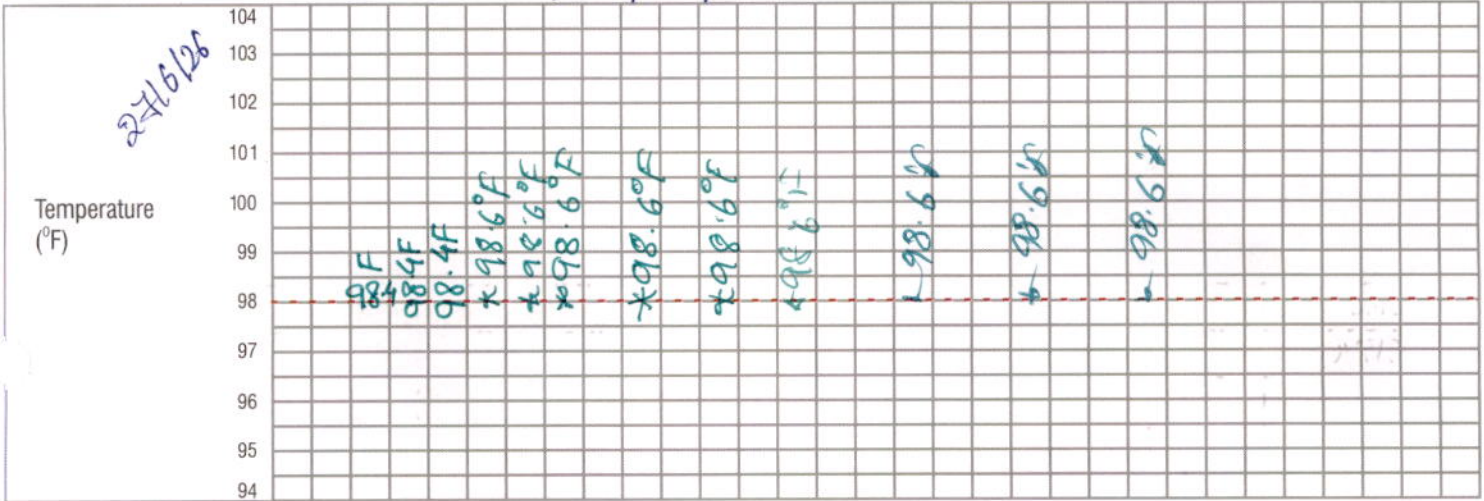 27/6/26
Temperature
(°F)
104
103
102
101
100
99
98
97
96
95
94
98.4 F
98.4F
98.4F
* 98.6°F
* 98.6°F
* 98.6°F
* 98.6°F
* 98.6°F
98.6°F
98.6°F
98.6°F
98.6°F